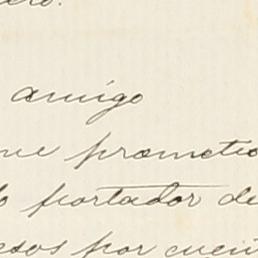 amigo
que prometio
portador de
pesos por cuen